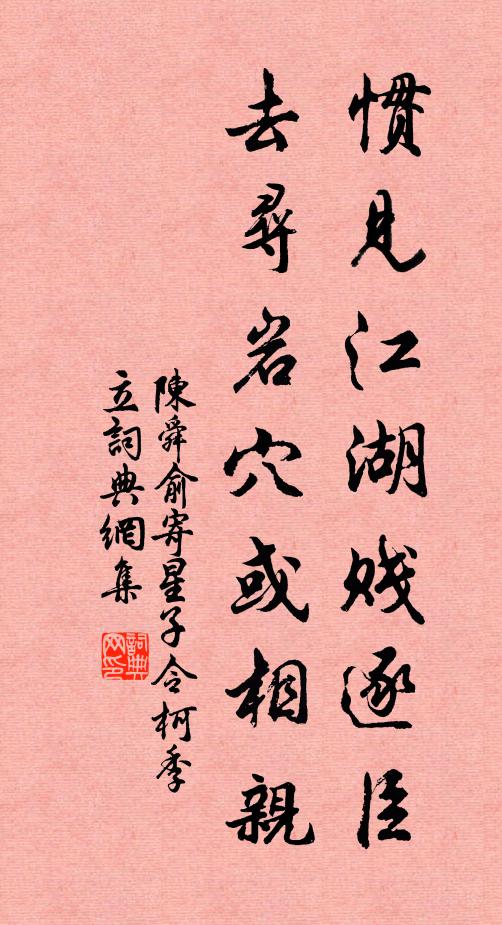 慣見江湖賤逐臣
去尋岩穴或相親
陳舜俞寄星子令柯季
立詞典網集
詞典网印